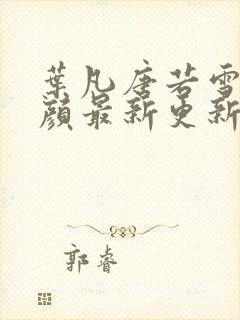 葉凡唐若雪
顏最新更新
郭睿